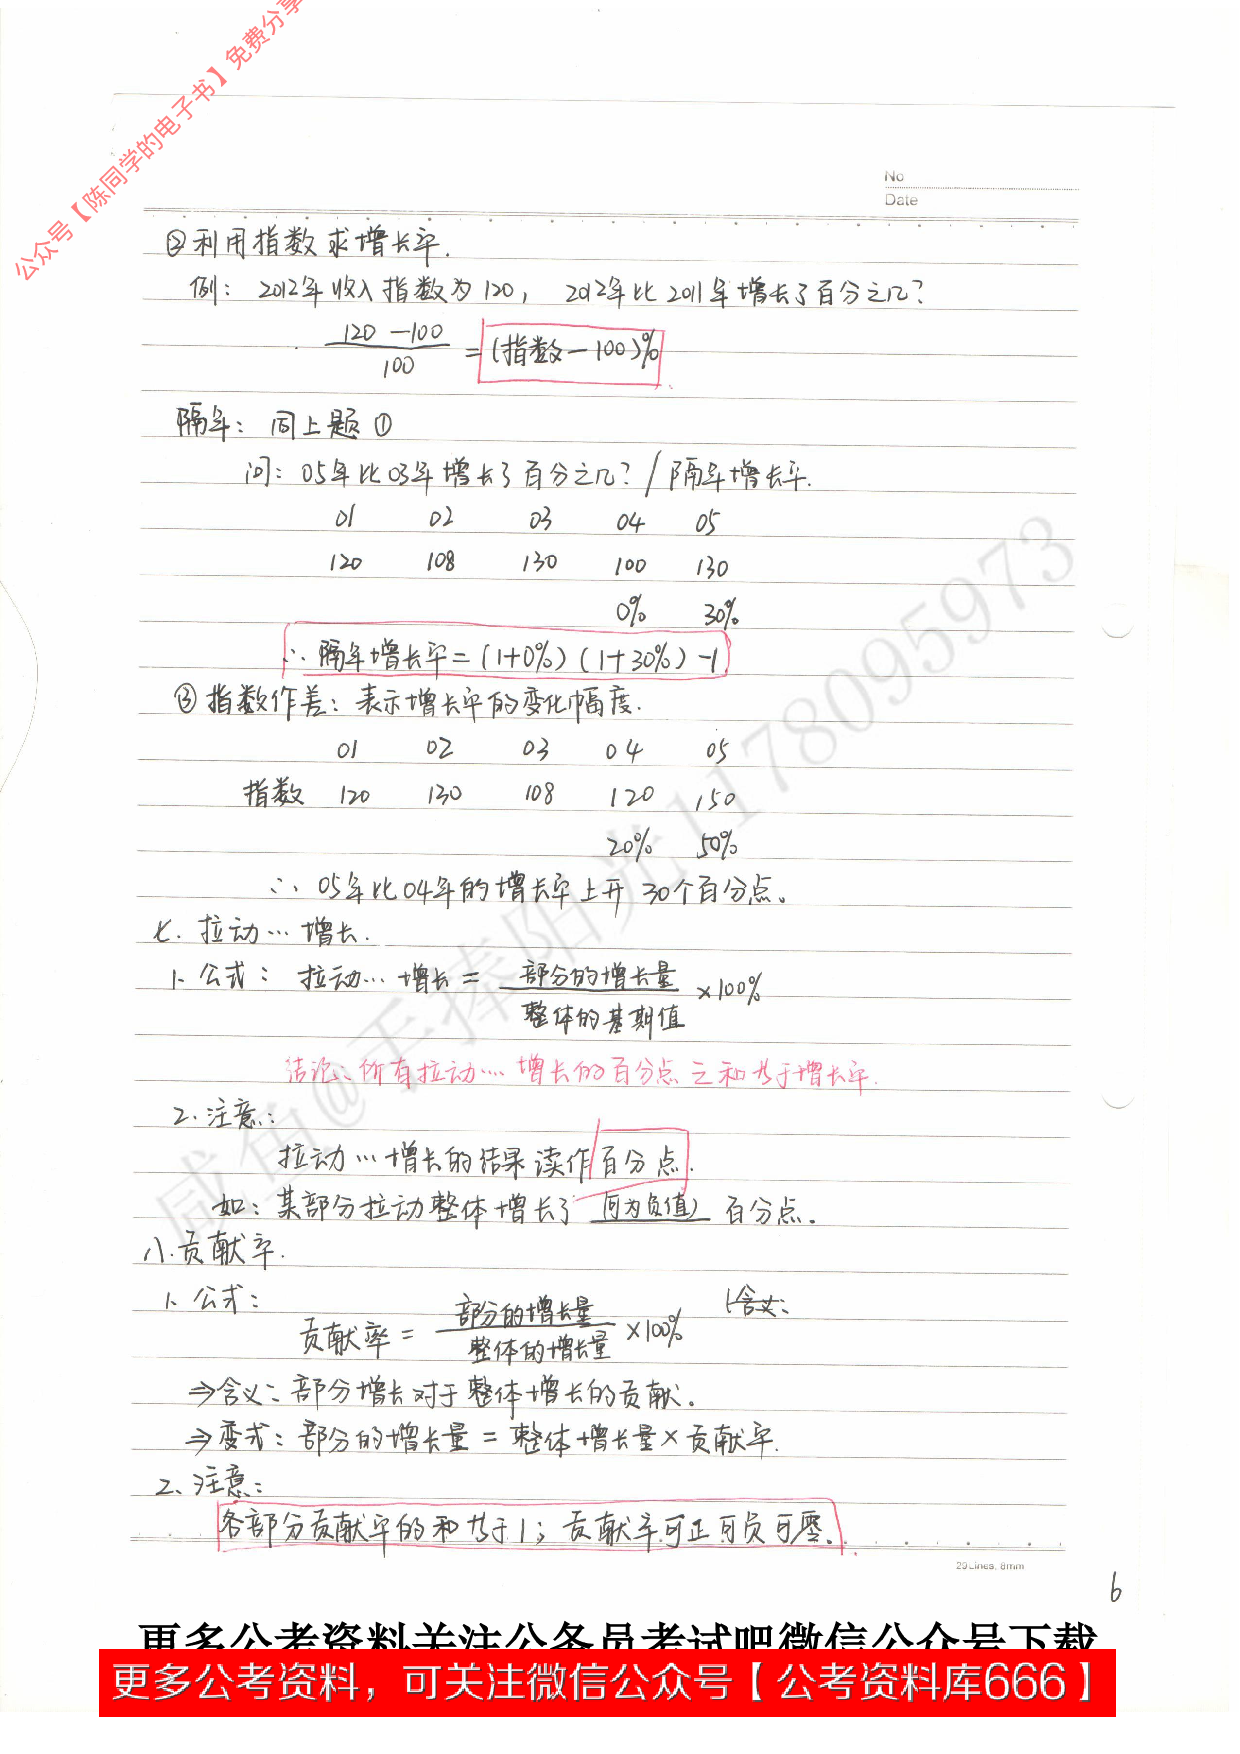 公众号【陈同学的电子书】免费分享
No
Date
②利用指数求增长率.
例：2012年收入指数为120，2012年比2011年增长了百分之几？
120－100
100
=(指数－100)%
隔年：同上题①
问：05年比03年增长了百分之几？/隔年增长率.
01 02 03 04 05
120 108 130 100 130
0% 30%
∴隔年增长率=(1+0%)(1+30%)-1
③指数作差：表示增长率的变化幅度.
01 02 03 04 05
指数 120 130 108 120 150
20% 50%
∴05年比04年的增长率上升30个百分点。
七.拉动…增长.
1、公式：拉动…增长= 部分的增长量
整体的基期值
×100%
结论：所有拉动…增长的百分点之和等于增长率.
2.注意：
拉动…增长的结果读作百分点.
如：某部分拉动整体增长了 (可为负值) 百分点。
八.贡献率.
1、公式： (含义：
贡献率= 部分的增长量
整体的增长量
×100%
⇒含义：部分增长对于整体增长的贡献.
⇒变式：部分的增长量=整体增长量×贡献率.
2、注意：
各部分贡献率的和为于1；贡献率可正可负可零.
29Lines, 8mm
6
咸鱼@手捧阳光1178095973
更多公考资料关注公务员考试吧微信公众号下载
更多公考资料，可关注微信公众号【公考资料库666】